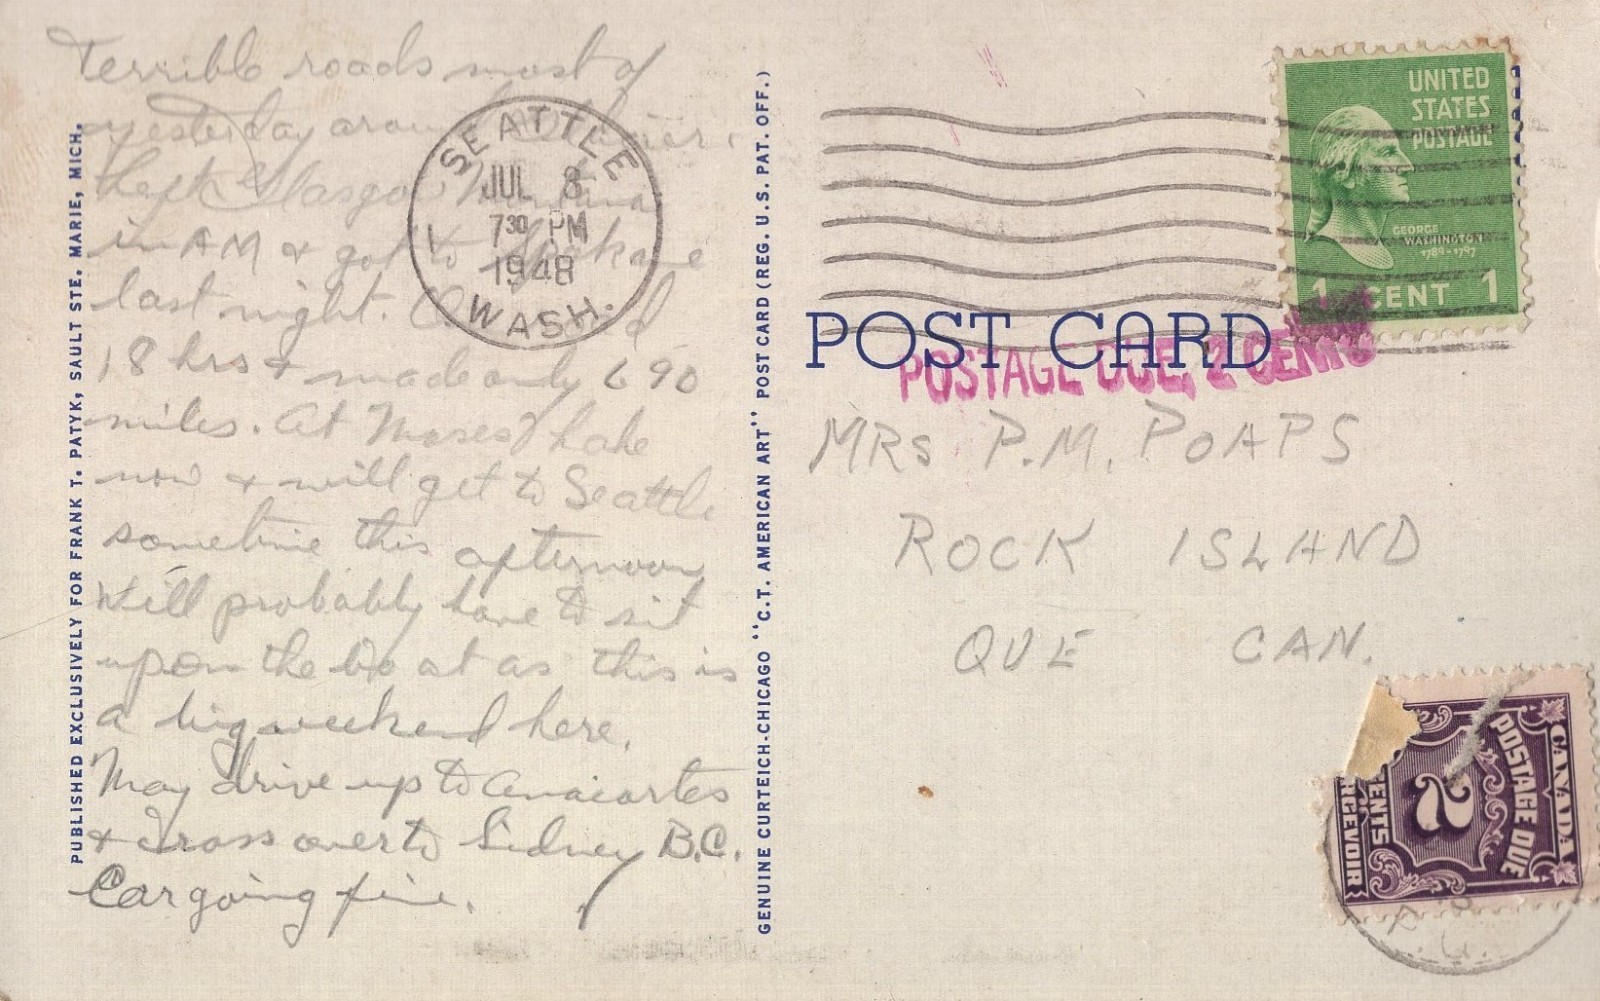 Terrible roads most of
yesterday around
Left Glasgow Montana
in AM & got to Spokane
last night.
18 hrs & made only 690
miles. At Moses Lake
now & will get to Seattle
sometime this afternoon
Will probably have to sit
upon the boat as this is
a big weekend here.
May drive up to Anacortes
& cross over to Sidney B.C.
Car going fine.
PUBLISHED EXCLUSIVELY FOR FRANK T. PATYK, SAULT STE. MARIE, MICH.
SEATTLE
JUL 8
7 30 PM
1948
WASH.
1
GENUINE CURTEICH-CHICAGO "C.T. AMERICAN ART" POST CARD (REG. U.S. PAT. OFF.)
UNITED
STATES
POSTAGE
GEORGE
WASHINGTON
1789-1797
1 CENT 1
POST CARD
POSTAGE DUE, 2 CENTS
MRS P.M. POAPS
ROCK ISLAND
QUE CAN.
CANADA
POSTAGE DUE
2
CENTS